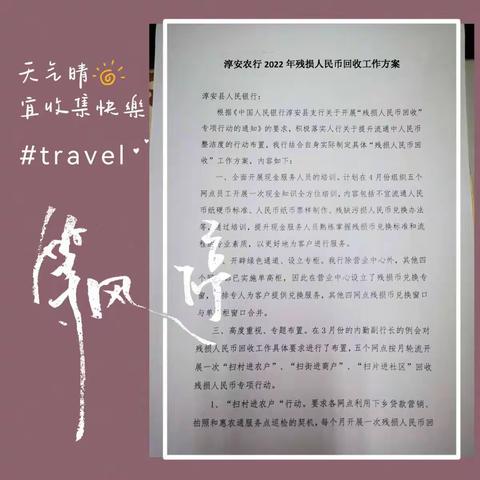 天气晴
宜收集快樂
#travel
淳安农行 2022 年残损人民币回收工作方案
淳安县人民银行：
根据《中国人民银行淳安县支行关于开展“残损人民币回收”
专项行动的通知》的要求，积极落实人行关于提升流通中人民币
整洁度的行动布置，我行结合自身实际制定具体“残损人民币回
收”工作方案，内容如下：
一、全面开展现金服务人员的培训。计划在 4 月份组织五个
网点员工开展一次现金知识全方位培训，内容包括不宜流通人民
币纸硬币标准、人民币纸币票样制作、残缺污损人民币兑换办法
等。通过培训，提升现金服务人员熟练掌握残损币兑换标准和流
程 业素质，以更好地为客户进行服务。
开辟绿色通道、设立专柜。我行除营业中心外，其他四
个 已实施单高柜，因此在营业中心设立了残损币兑换专
窗， 排专人为客户提供兑换服务，其他四网点残损币兑换窗口
与单 柜窗口合并。
三、高度重视、专题布置。在 3 月份的内勤副行长的例会对
残损人民币回收工作具体要求进行了布置，五个网点按月轮流开
展一次“扫村进农户”、“扫街进商户”、“扫片进社区”回收
残损人民币专项行动。
1、“扫村进农户”行动。要求各网点利用下乡贷款营销、
拍照和惠农通服务点巡检的契机，每个月开展一次残损人民币回